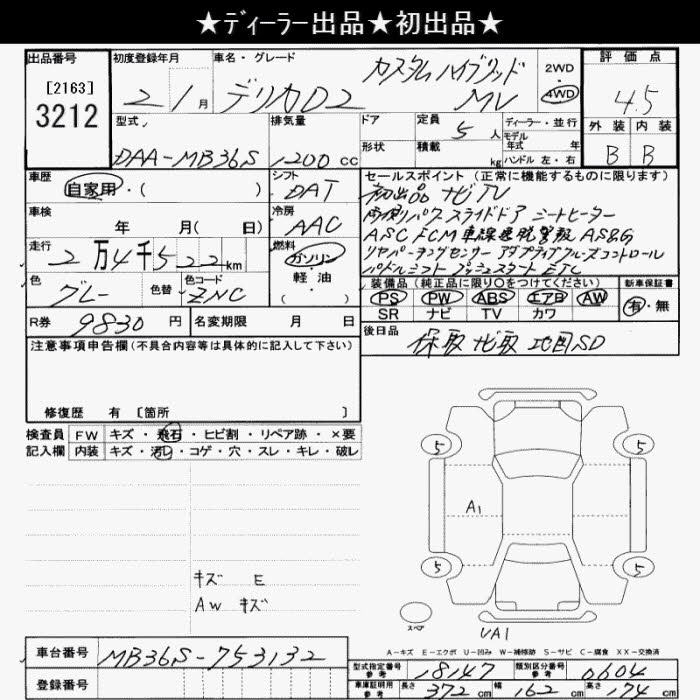 ★ディーラー出品★初出品★
出品番号 初度登録年月 車名・グレード 評価点
[2163]
3212
2 1月 デリカD2 カスタムハイブリッド MV 2WD 4WD 4.5
型式 排気量 ドア 定員 ディーラー・並行 外装 内装
DAA-MB36S 1200 cc 形状 積載 5人 kg モデル年式 年 ハンドル 左・右 B B
車歴 シフト セールスポイント(正常に機能するものに限ります)
自家用・( ) DAT 初出品 ナビ TV
車検 冷房 両側パワスライドドア シートヒーター
年 月( 日) AAC ASC FCM 車線逸脱警報 AS&G
走行 燃料 リヤパーキングセンサー アダプティブクルーズコントロール
2万4千522km ガソリン パドルシフト プッシュスタート ETC
色 色替 色コード 軽・油 装備品(純正品に限り○をつけてください) 新車保証書
グレー ZNC ( ) PS PW ABS エアB AW 有・無
SR ナビ TV カワ
R券 9830円 名変期限 月 日 後日品 保取 ナビ取 地図SD
注意事項申告欄(不具合内容等は具体的に記入して下さい)
修復歴 有 [箇所 ]
検査員 FW キズ・飛石・ヒビ割・リペア跡・×要
記入欄 内装 キズ・汚レ・コゲ・穴・スレ・キレ・破レ
5 5
A1
5 5
キズ E
AW キズ
スペア
UA1
A-キズ E-エクボ U-凹み W-補修跡 S-サビ C-腐食 XX-交換済
車台番号 MB36S-753132
型式指定番号 参考 18147 類別区分番号 参考 0604
登録番号
車庫証明用 参考 長さ 372cm 幅 162cm 高さ 174cm